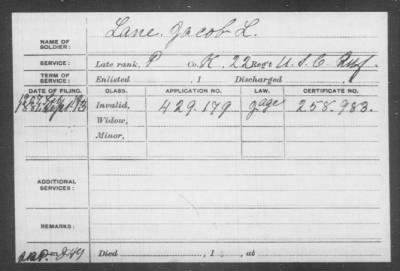 NAME OF SOLDIER: Lane, Jacob L.
SERVICE: Late rank, P Co. K, 22 Reg't U.S.C. Inf.
TERM OF SERVICE: Enlisted , 1 Discharged , 1
DATE OF FILING. CLASS. APPLICATION NO. LAW. CERTIFICATE NO.
Invalid, 429.179 258.983.
Widow,
Minor,
ADDITIONAL SERVICES:
REMARKS:
Died , 1 , at